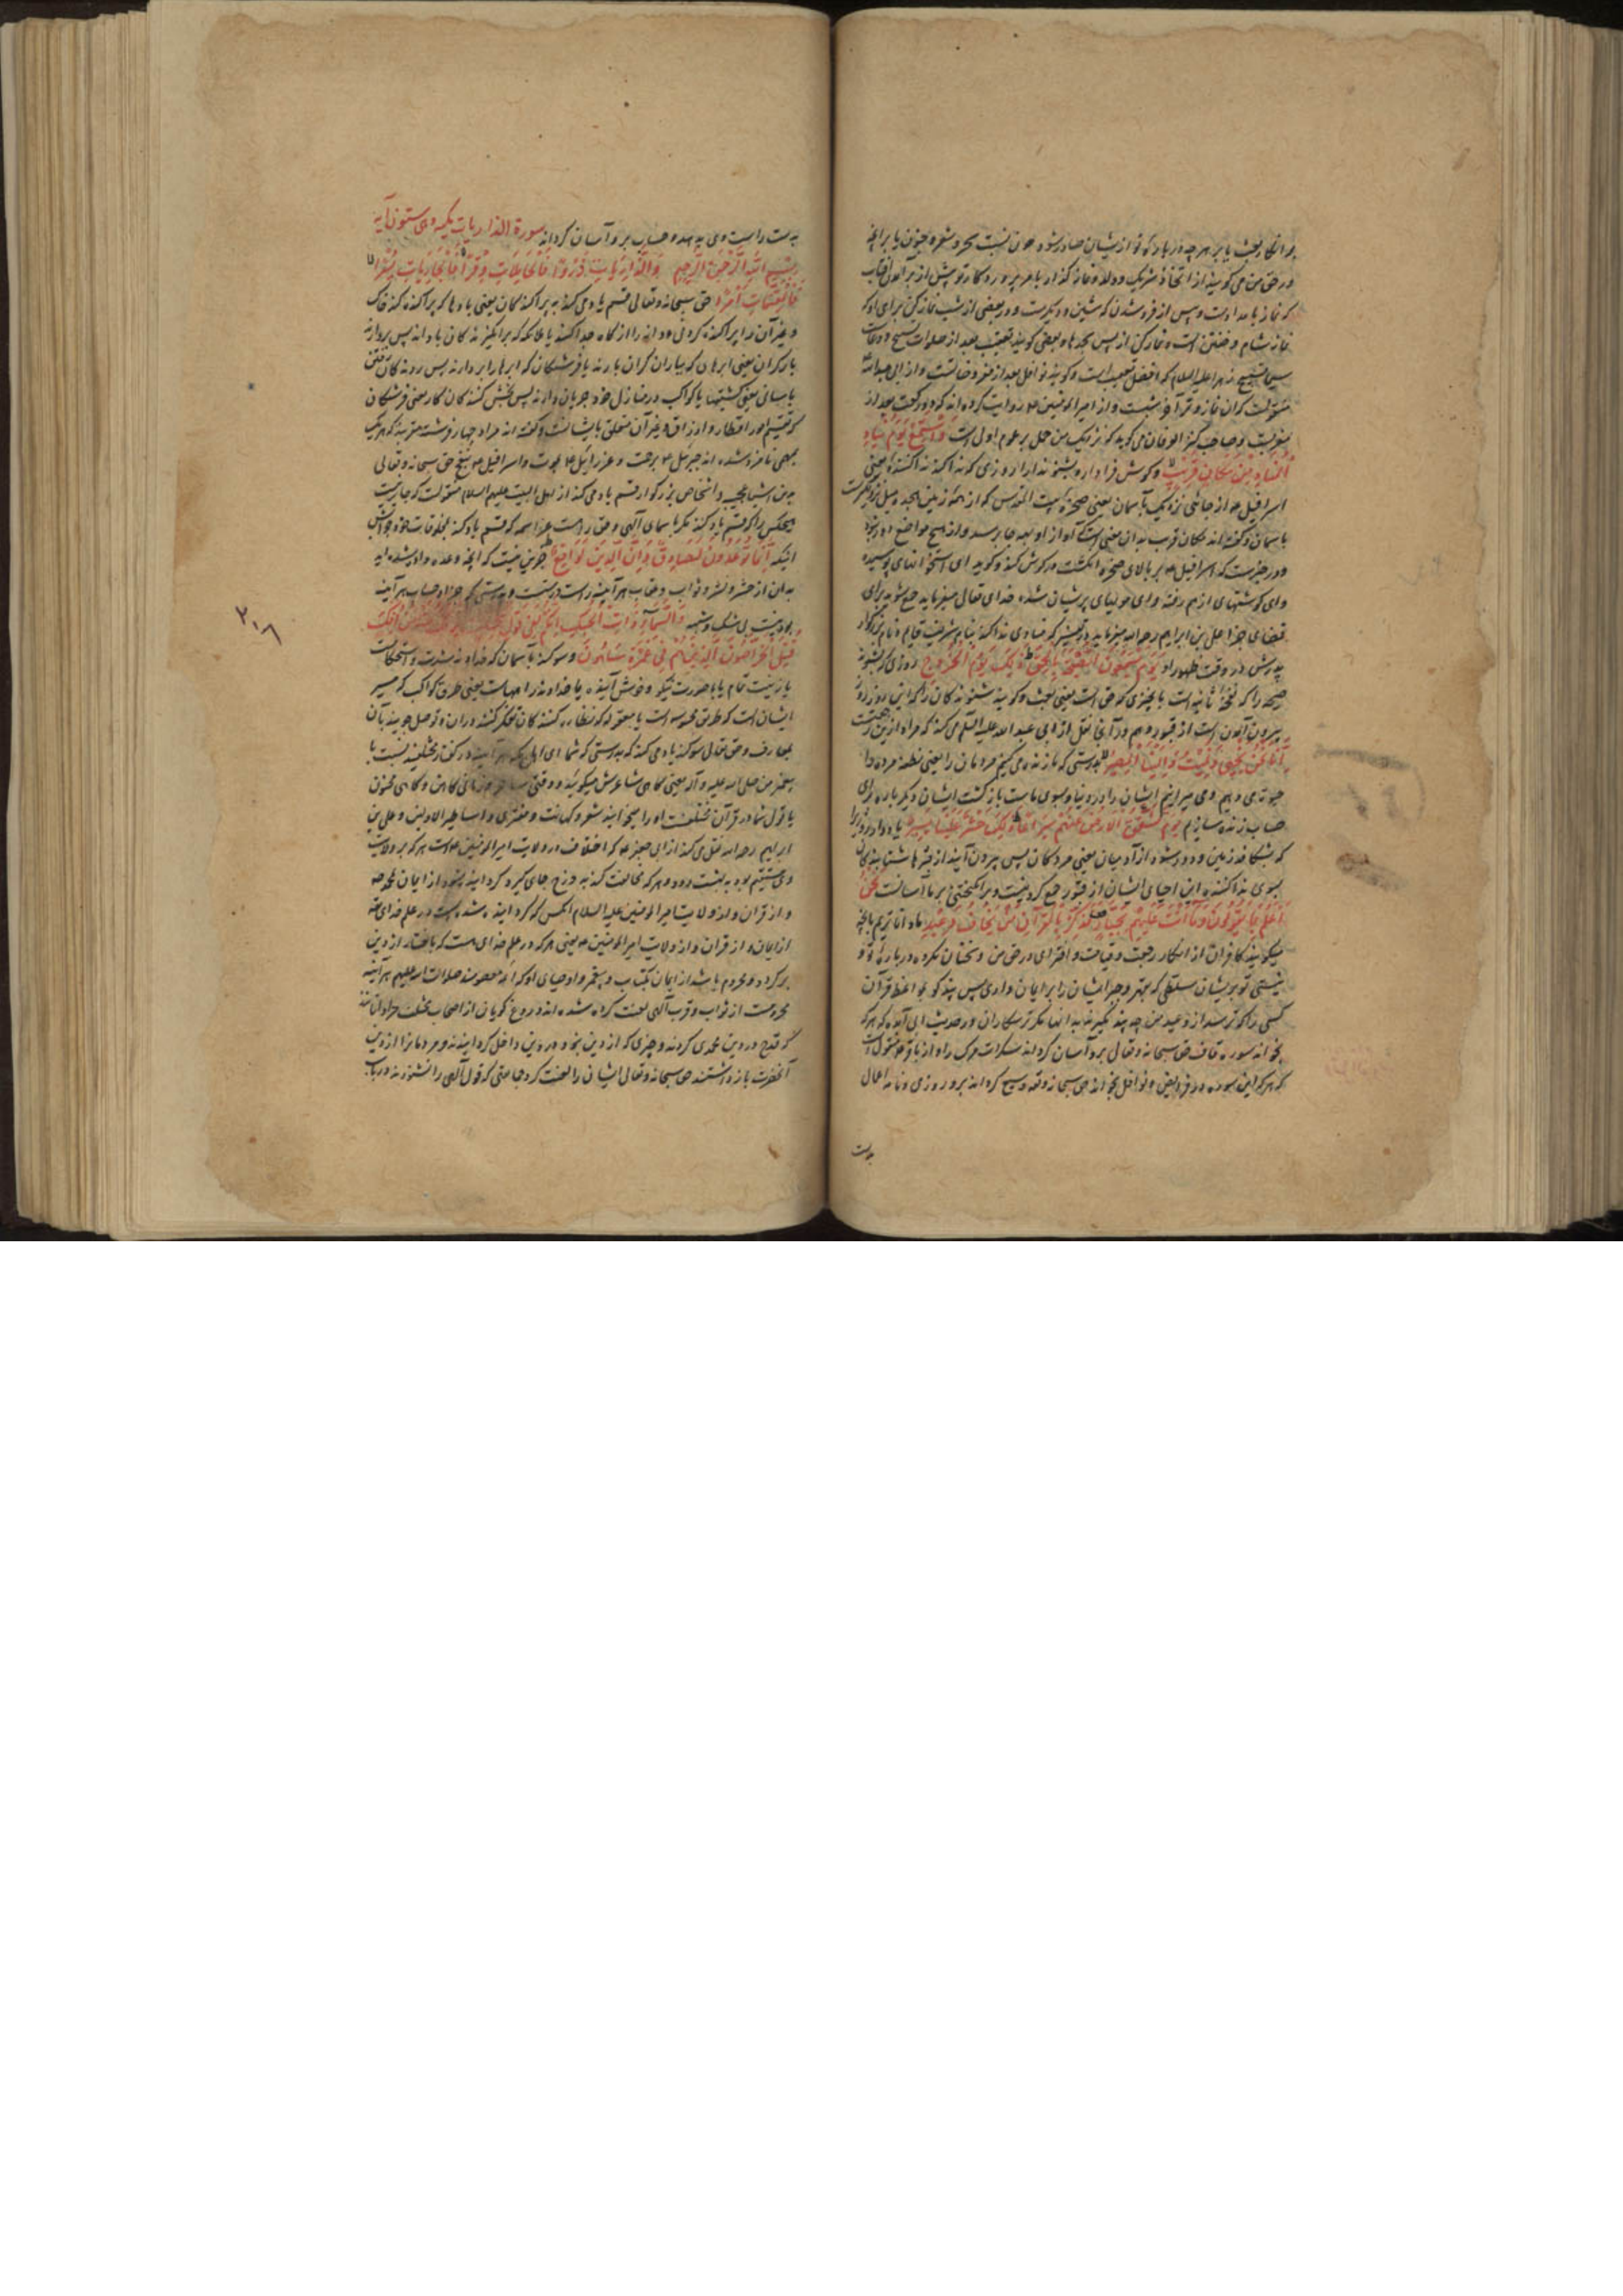 بر انکار بعث یا بر هر چه در باره تو از ایشان صادر شود چون نسبت سحر و شعر و جنون یا بر آنچه
در حق من می گویند از اتخاذ شریک و ولد و نماز گذار بامر پروردگار تو پیش از برآمدن آفتاب
که نماز بامداد است و پس از فرو شدن که پیشین و دیگر است و در بعضی از شب نماز کن برای او که
نماز شام و خفتن است و نماز کن از پس سجدها و بعضی گویند تعقیب بعد از صلوات
تسبیح زهرا علیها السلام که افضل تعقیب است و گویند نوافل بعد از مفروضات است و از ابی عبدالله
منقولست که آن نماز وتر آخر شبست و از امیر المؤمنین ع روایت کرده اند که دو رکعت بعد از
وصاحب کنز العرفان می گوید که نزدیک من حمل بر عموم اولی است وَاسْتَمِعْ یَوْمَ یُنَادِ
الْمُنَادِ مِنْ مَکَانٍ قَرِیبٍ و گوش فرا دار و بشنو ندا را روزی که ندا کند ندا کننده یعنی
اسرافیل ع از جائی نزدیک بآسمان یعنی صخره بیت المقدس که از همه زمین بهجده میل نزدیکتر است
بآسمان و گفته اند مکان قریب بدان معنی است که آواز او بهمه جا برسد و از هیچ مواضع دور نبود
و در خبرست که اسرافیل ع بر بالای صخره انگشت در گوش کند و گوید ای استخوانهای پوسیده
و ای گوشتهای از هم رفته و ای مویهای پریشان شده خدای تعالی میفرماید جمع شوید برای
قضای جزا علی بن ابراهیم رحمه الله میفرماید در تفسیر که منادی ندا کند بنام شریف قایم و نام بزرگوار
پدرش در وقت ظهور او یَوْمَ یَسْمَعُونَ الصَّیْحَةَ بِالْحَقِّ ذَلِکَ یَوْمُ الْخُرُوجِ روزی که بشنوند
صیحه را که نفخه ثانیه است با چیزی که حق است یعنی بعث و گویند شنوندگان را که این روز روز
بیرون آمدن است از قبور و هم در آنجا نقل از ابی عبد الله علیه السلام می کند که مراد ازین رجعتست
إِنَّا نَحْنُ نُحْیِی وَنُمِیتُ وَإِلَیْنَا الْمَصِیرُ بدرستی که ما زنده می کنیم مردمان را یعنی نطفه مرده را
حیوة می دهیم و می میرانیم ایشان را در دنیا و بسوی ماست بازگشت ایشان دیگر باره برای
حساب زنده سازیم یَوْمَ تَشَقَّقُ الْأَرْضُ عَنْهُمْ سِرَاعًا ذَلِکَ حَشْرٌ عَلَیْنَا یَسِیرٌ یاد دار روزی را
که بشکافد زمین و دور شود از آدمیان یعنی مردگان پس بیرون آیند از قبرها شتابندگان
بسوی ندا کننده این احیای ایشان از قبور جمع کردنیست و برانگیختنی بر ما آسانست نَحْنُ
أَعْلَمُ بِمَا یَقُولُونَ وَمَا أَنْتَ عَلَیْهِمْ بِجَبَّارٍ فَذَکِّرْ بِالْقُرْآنِ مَنْ یَخَافُ وَعِیدِ ما داناتریم بآنچه
میگویند کافران از انکار رجعت و قیامت و افترای در حق من و سخنان مکروه درباره تو و
نیستی تو بر ایشان مسلطی که بجبر و قهر ایشان را بر ایمان داری پس پند گو بمواعظ قرآن
کسی را که ترسد از وعید من چه پند نگیرند بدانها مگر ترسکاران و در حدیث ابی آمده که هر که
بخواند سوره قاف حق سبحانه و تعالی برو آسان گرداند سکرات مرگ را و از باقر ع منقول است
که هر که این سوره در فرایض و نوافل بخواند حق سبحانه و تعه وسیع گرداند برو روزی و نامه اعمال
بدست
بدست راست وی بدهد و حساب برو آسان گرداند سورة الذاریات مکیه وهی ستون آیه
بِسْمِ اللهِ الرَّحْمنِ الرَّحِیمِ وَالذَّارِیَاتِ ذَرْوًا فَالْحَامِلَاتِ وِقْرًا فَالْجَارِیَاتِ یُسْرًا
فَالْمُقَسِّمَاتِ أَمْرًا حق سبحانه وتعالی قسم یاد می کند به پراکنده کنندگان یعنی بادها که پراکنده کنند خاک
و غیر آن را پراکنده کردنی و دانه را از کاه جدا کنند یا ملائکه که برانگیزندگان بادند پس بردارنده
بار گران یعنی ابرها که بباران گران بارند یا فرشتگان که ابرها را بردارند پس روندگان رفتنی
بآسانی یعنی کشتیها یا کواکب در منازل خود جریان دارند پس بخش کنندگان کار یعنی فرشتگان
که تقسیم امور اقطار و ارزاق و غیر آن متعلق بایشانست و گفته اند مراد چهار فرشته مقربند که هر یک
بمهمی نامزد شده اند جبرئیل ع برحمت و عزرائیل ع بموت و اسرافیل ع بنفخ حق سبحانه و تعالی
بدین اشیا عجیبه و اشخاص بزرگوار قسم یاد می کند از اهل البیت علیهم السلام منقولست که جایز نیست
هیچکس را که قسم یاد کند مگر باسمای الهی و حق راست عز اسمه که قسم یاد کند بمخلوقات خود و جوابش
اینکه إِنَّمَا تُوعَدُونَ لَصَادِقٌ وَإِنَّ الدِّینَ لَوَاقِعٌ جز این نیست که آنچه وعده داده شده اید
بدان از حشر و نشر و ثواب و عقاب هر آینه راست و درستست و بدرستی که جزا و حساب هر آینه
بودنیست بی شک و شبهه وَالسَّمَاءِ ذَاتِ الْحُبُکِ إِنَّکُمْ لَفِی قَوْلٍ مُخْتَلِفٍ یُؤْفَکُ عَنْهُ مَنْ أُفِکَ
قُتِلَ الْخَرَّاصُونَ الَّذِینَ هُمْ فِی غَمْرَةٍ سَاهُونَ و سوگند بآسمان که خداوند شدت و استحکامست
یا زینت تمام یا با صورت نیکو و خوش آینده یا خداوند راههاست یعنی طرق کواکب که مسیر
ایشان است که طرق محسوسه است یا معقوله که نظاره کنندگان و تفکر کننده در آن و توصل جویند بآن
بمعارف و حق تعالی سوگند یاد می کند که بدرستی که شما ای اهل مکه هر آینه در گفتار مختلفید نسبت با
پیغمبر من صلی الله علیه و آله یعنی گاهی شاعرش میگویید و وقتی ساحر و زمانی کاهن و گاهی مجنون
یا قول شما در قرآن مختلفست او را میخوانید شعر و کهانت و مفتری و اساطیر الاولین و علی بن
ابراهیم رحمه الله نقل می کند از ابی جعفر ع که اختلاف در ولایت امیر المؤمنین ع است هر که بر ولایت
وی مستقیم بود به بهشت رود و هر که مخالفت کند به دوزخ جای گیرد گردانیده شود از ایمان بمحمد ص
و از قرآن و از ولایت امیر المؤمنین علیه السلام آنکس که گردانیده شده است در علم خدای تعه
از ایمان و از قرآن و از ولایت امیر المؤمنین ع یعنی هر که در علم خدای هست که باختیار از دین
برگردد و محروم باشد از ایمان بکتاب و پیغمبر و اوصیای او که ائمه معصومند صلوات الله علیهم هر آینه
محرومست از ثواب و قرب الهی لعنت کرده شده اند دروغ گویان از اصحاب مختلف مراد آنانند
که قدح در دین محمدی کردند و چیزی که از دین نبود در دین داخل گردانیدند و مردمانرا از دین
آنحضرت باز داشتند حق سبحانه و تعالی ایشان را لعنت کرد جماعتی که قول الهی را نشنوند و در باب
۳۰۸